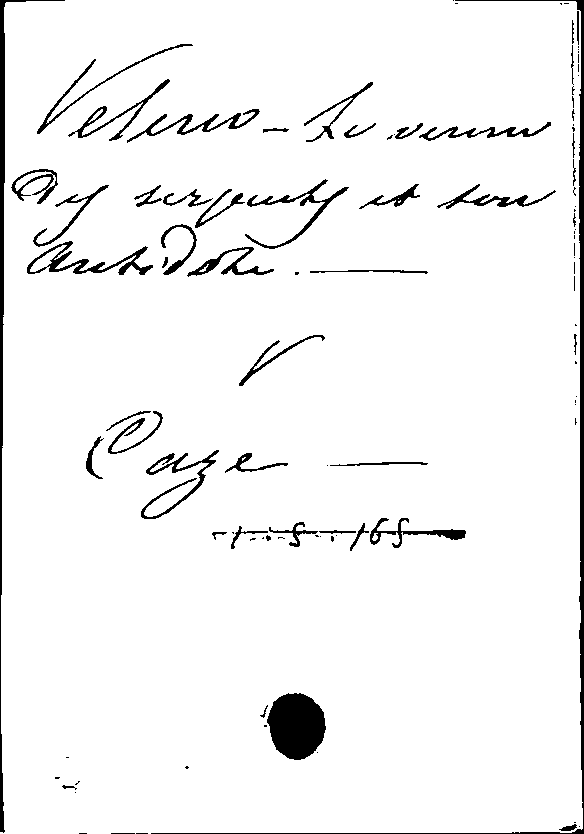 Veleno - Le venin
des serpents et son
antidote. —
V
Caze —
1.5.165